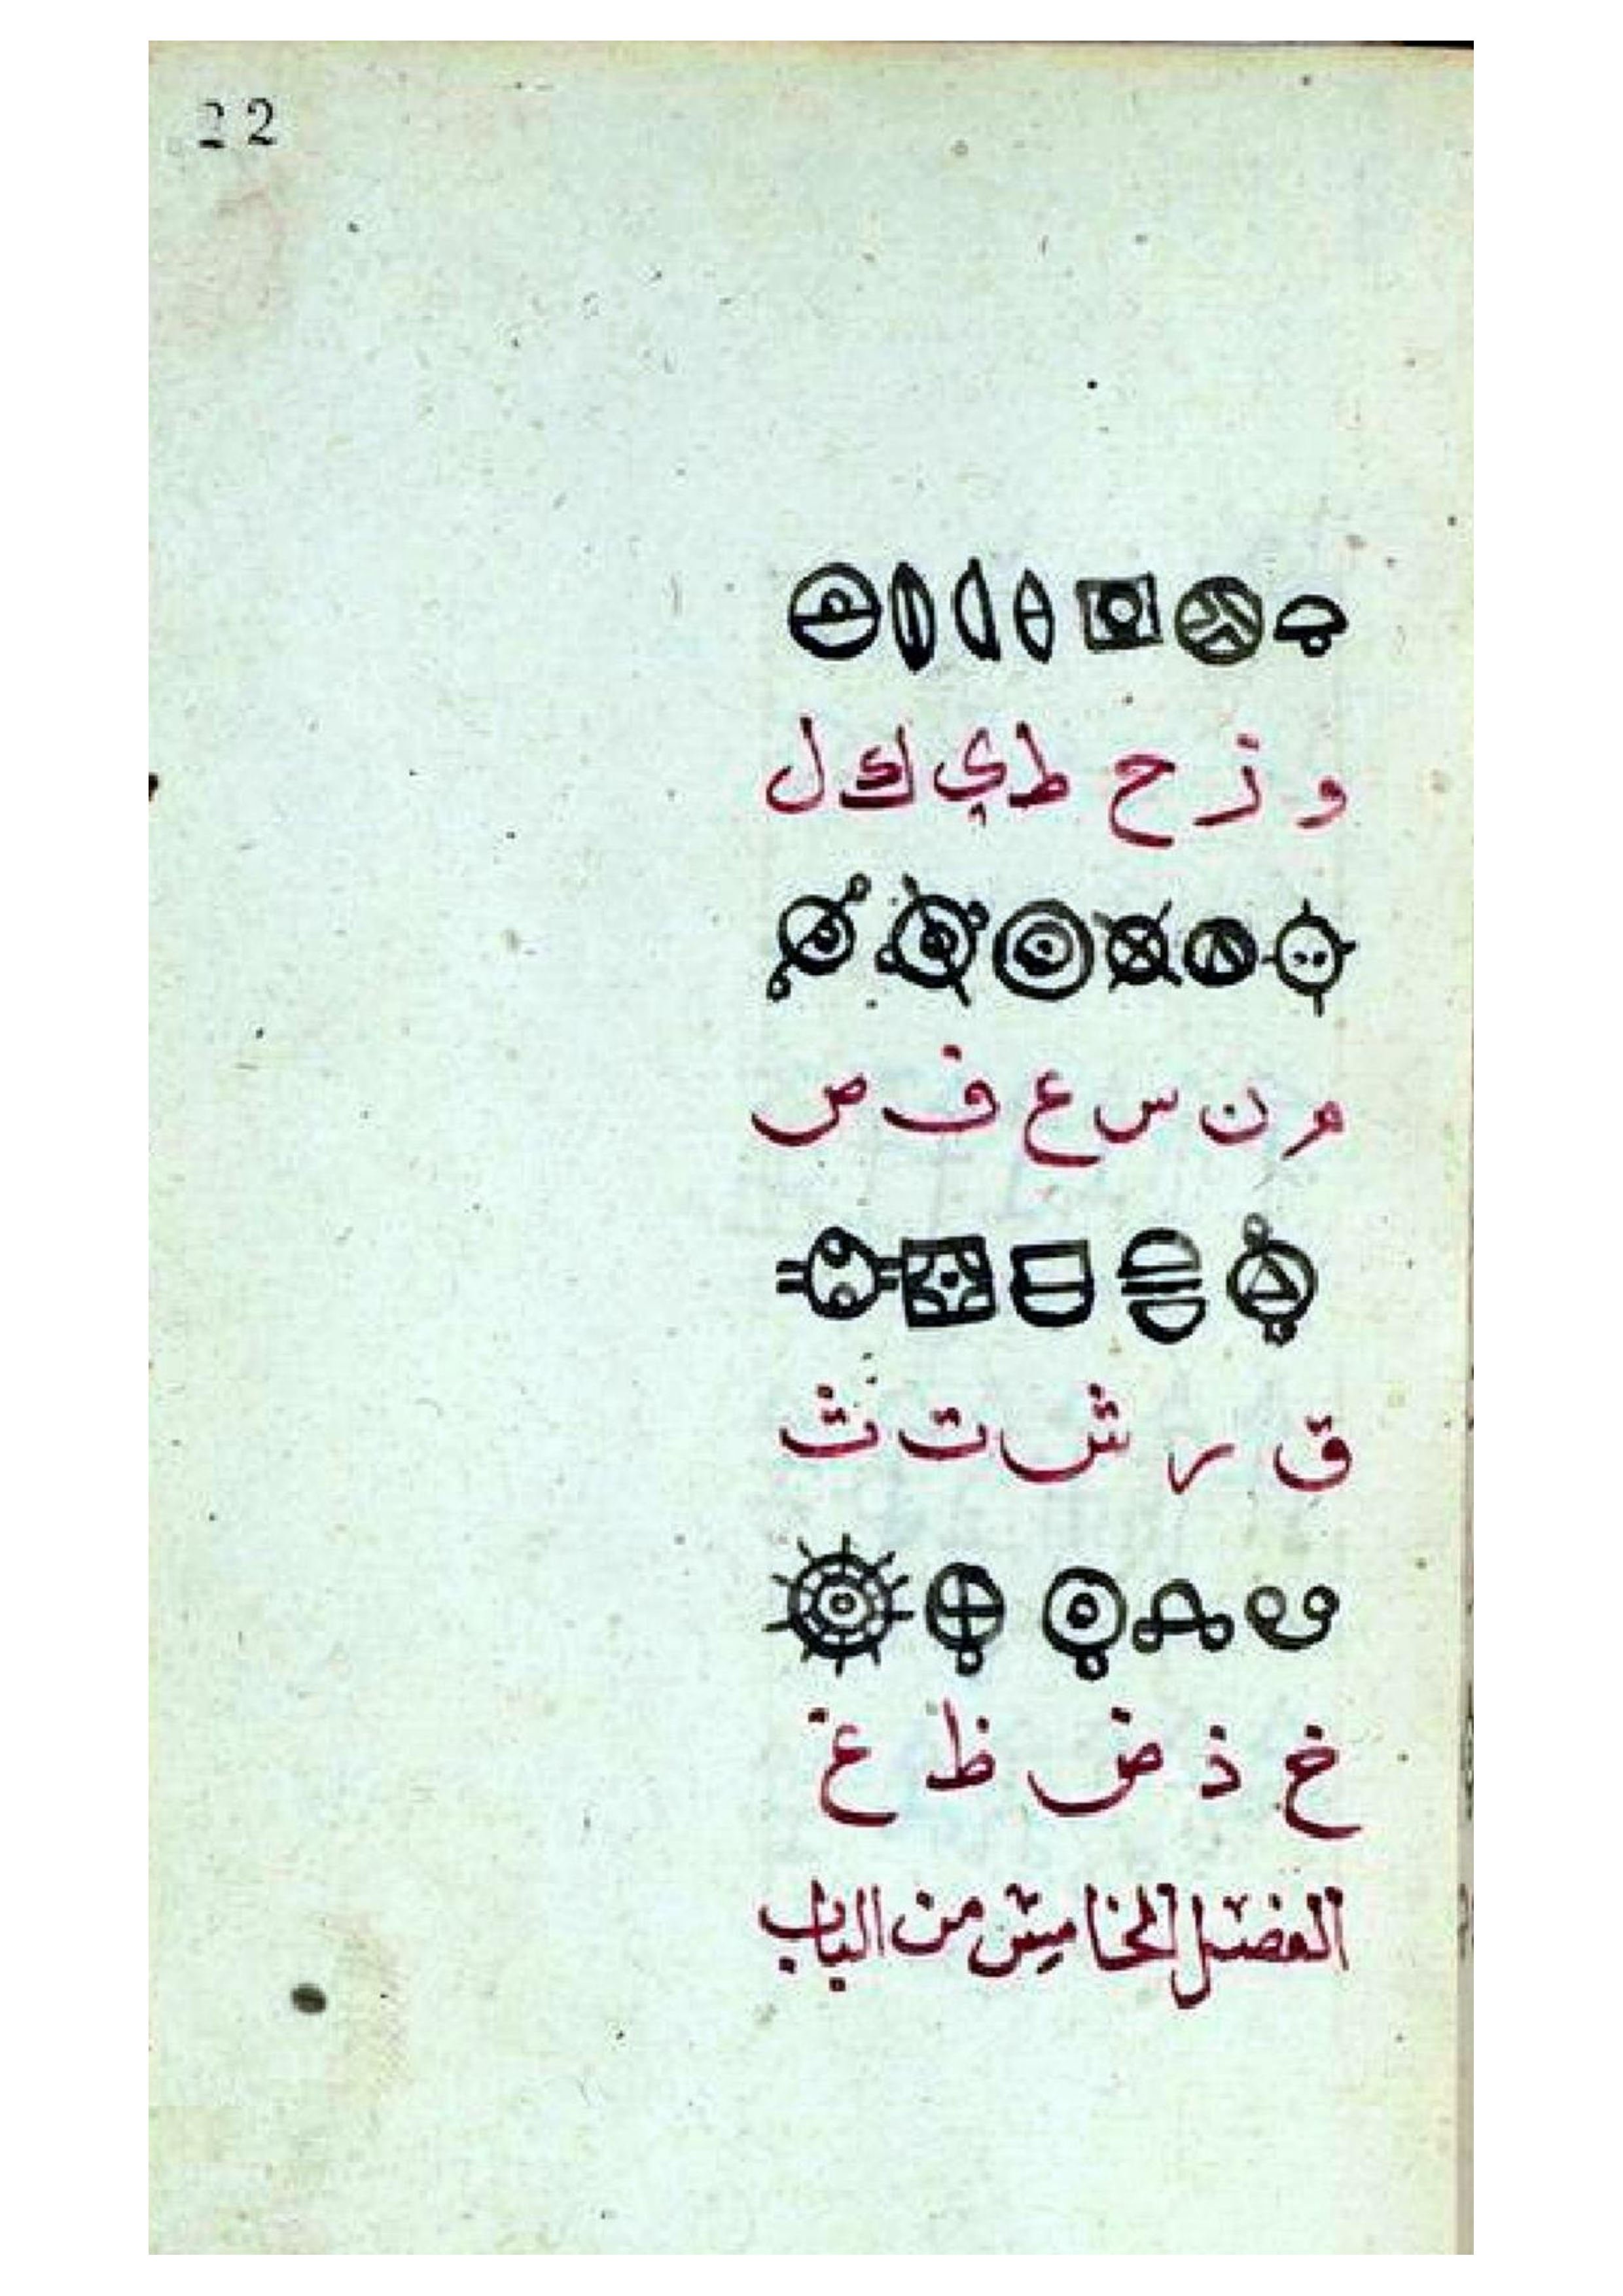 22
و ز ح ط ي ك ل
م ن س ع ف ص
ق ر ش ت ث
خ ذ ض ظ غ
الفصل الخامس من الباب